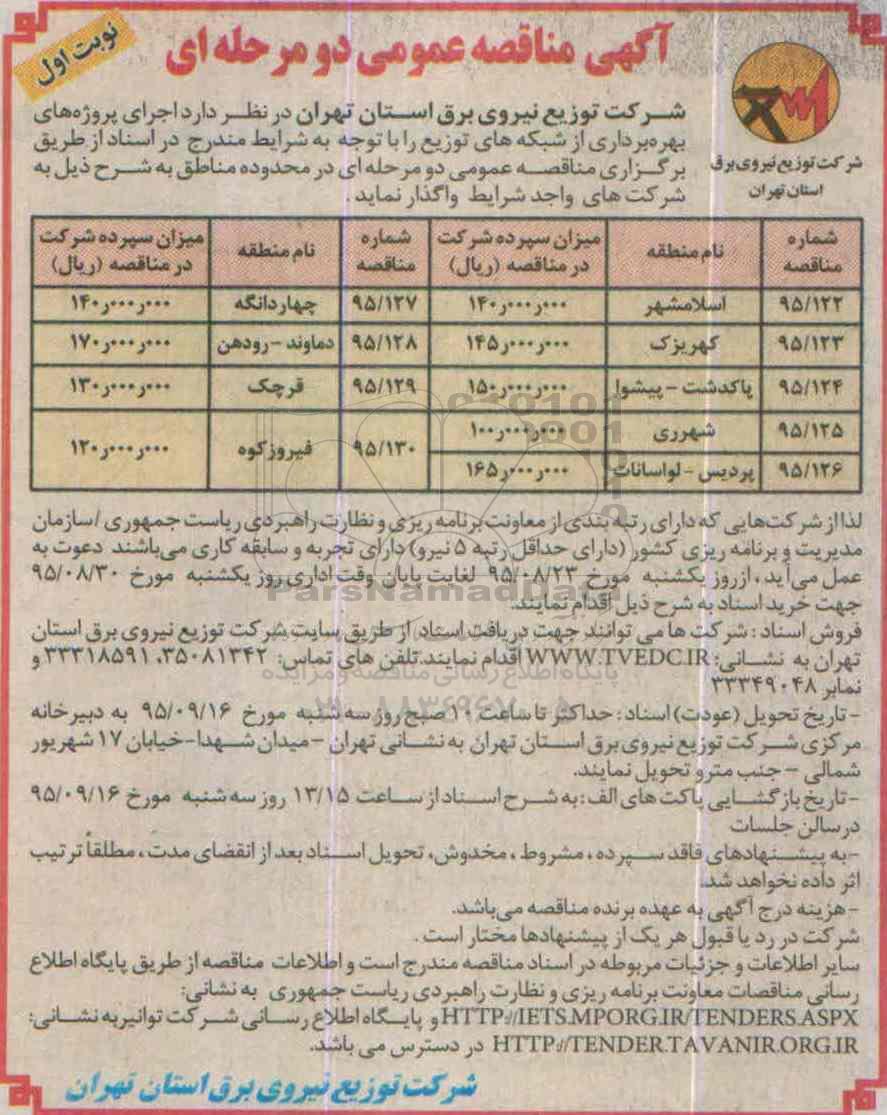 نوبت اول
آگهی مناقصه عمومی دو مرحله ای
شرکت توزیع نیروی برق
استان تهران
شرکت توزیع نیروی برق استان تهران در نظر دارد اجرای پروژه‌های
بهره‌برداری از شبکه های توزیع را با توجه به شرایط مندرج در اسناد از طریق
برگزاری مناقصه عمومی دو مرحله ای در محدوده مناطق به شرح ذیل به
شرکت های واجد شرایط واگذار نماید.
شماره مناقصه | نام منطقه | میزان سپرده شرکت در مناقصه (ریال) | شماره مناقصه | نام منطقه | میزان سپرده شرکت در مناقصه (ریال)
۹۵/۱۲۲ | اسلامشهر | ۱۴۰ر۰۰۰ر۰۰۰ | ۹۵/۱۲۷ | چهاردانگه | ۱۴۰ر۰۰۰ر۰۰۰
۹۵/۱۲۳ | کهریزک | ۱۴۵ر۰۰۰ر۰۰۰ | ۹۵/۱۲۸ | دماوند - رودهن | ۱۷۰ر۰۰۰ر۰۰۰
۹۵/۱۲۴ | پاکدشت - پیشوا | ۱۵۰ر۰۰۰ر۰۰۰ | ۹۵/۱۲۹ | قرچک | ۱۳۰ر۰۰۰ر۰۰۰
۹۵/۱۲۵ | شهرری | ۱۰۰ر۰۰۰ر۰۰۰ | ۹۵/۱۳۰ | فیروزکوه | ۱۲۰ر۰۰۰ر۰۰۰
۹۵/۱۲۶ | پردیس - لواسانات | ۱۶۵ر۰۰۰ر۰۰۰
لذا از شرکت‌هایی که دارای رتبه بندی از معاونت برنامه ریزی و نظارت راهبردی ریاست جمهوری /سازمان
مدیریت و برنامه ریزی کشور (دارای حداقل رتبه ۵ نیرو) دارای تجربه و سابقه کاری می‌باشند دعوت به
عمل می‌آید، از روز یکشنبه مورخ ۹۵/۰۸/۲۳ لغایت پایان وقت اداری روز یکشنبه مورخ ۹۵/۰۸/۳۰
جهت خرید اسناد به شرح ذیل اقدام نمایند.
فروش اسناد : شرکت ها می توانند جهت دریافت اسناد از طریق سایت شرکت توزیع نیروی برق استان
تهران به نشانی: WWW.TVEDC.IR اقدام نمایند.تلفن های تماس: ۳۵۰۸۱۳۴۲، ۳۳۳۱۸۵۹۱ و
نمابر ۳۳۳۴۹۰۴۸
- تاریخ تحویل (عودت) اسناد : حداکثر تا ساعت ۱۰ صبح روز سه شنبه مورخ ۹۵/۰۹/۱۶ به دبیرخانه
مرکزی شرکت توزیع نیروی برق استان تهران به نشانی تهران - میدان شهدا-خیابان ۱۷ شهریور
شمالی - جنب مترو تحویل نمایند.
- تاریخ بازگشایی پاکت های الف : به شرح اسناد از ساعت ۱۳/۱۵ روز سه شنبه مورخ ۹۵/۰۹/۱۶
در سالن جلسات
- به پیشنهادهای فاقد سپرده ، مشروط ، مخدوش، تحویل اسناد بعد از انقضای مدت ، مطلقاً ترتیب
اثر داده نخواهد شد.
- هزینه درج آگهی به عهده برنده مناقصه می‌باشد.
شرکت در رد یا قبول هر یک از پیشنهادها مختار است .
سایر اطلاعات و جزئیات مربوطه در اسناد مناقصه مندرج است و اطلاعات مناقصه از طریق پایگاه اطلاع
رسانی مناقصات معاونت برنامه ریزی و نظارت راهبردی ریاست جمهوری به نشانی:
HTTP://IETS.MPORG.IR/TENDERS.ASPX و پایگاه اطلاع رسانی شرکت توانیر به نشانی:
HTTP://TENDER.TAVANIR.ORG.IR در دسترس می باشد.
شرکت توزیع نیروی برق استان تهران
ParsNamadData
پایگاه اطلاع رسانی مناقصه و مزایده